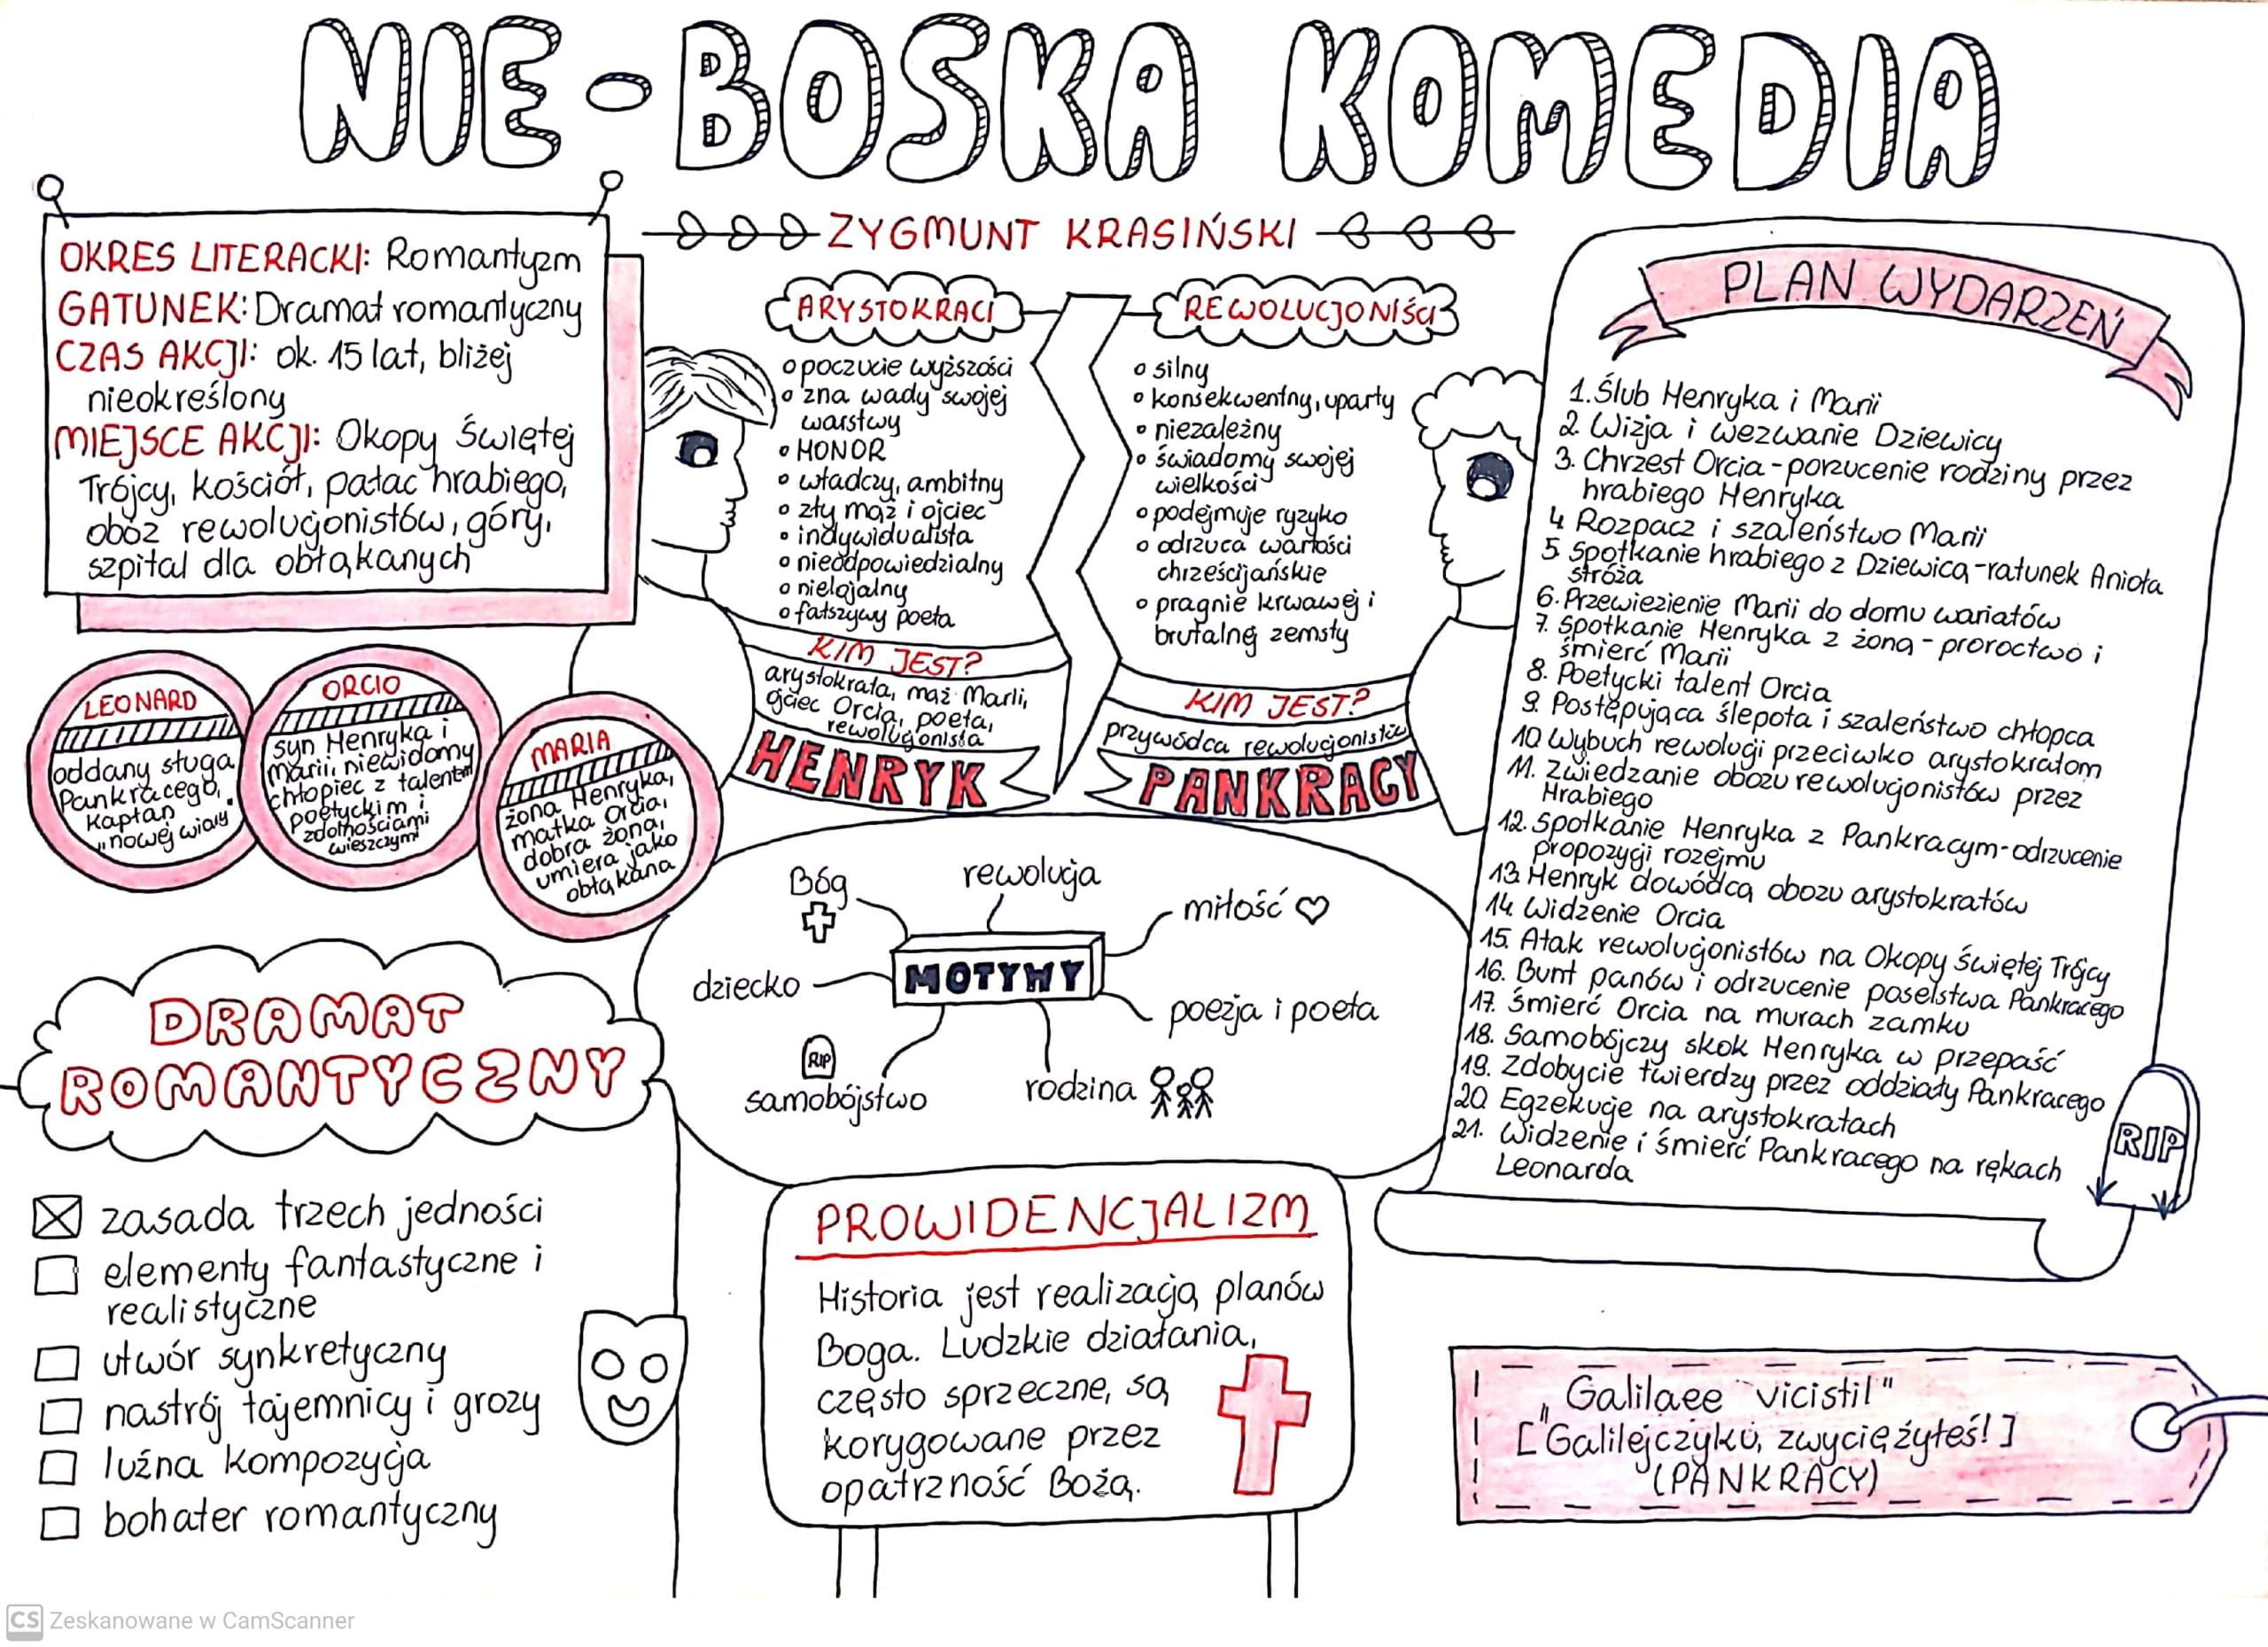 NIE-BOSKA KOMEDIA
ZYGMUNT KRASIŃSKI
OKRES LITERACKI: Romantyzm
GATUNEK: Dramat romantyczny
CZAS AKCJI: ok. 15 lat, bliżej
nieokreślony
MIEJSCE AKCJI: Okopy Świętej
Trójcy, kościół, pałac hrabiego,
obóz rewolucjonistów, góry,
szpital dla obłąkanych
LEONARD
oddany sługa
Pankracego,
kapłan
"nowej wiary"
ORCIO
syn Henryka i
Marii, niewidomy
chłopiec z talentem
poetyckim i
zdolnościami
wieszczymi
MARIA
żona Henryka,
matka Orcia,
dobra żona,
umiera jako
obłąkana
ARYSTOKRACI
poczucie wyższości
zna wady swojej
warstwy
HONOR
władczy, ambitny
zły mąż i ojciec
indywidualista
nieodpowiedzialny
nielojalny
fałszywy poeta
KIM JEST?
arystokrata, mąż Marii,
ojciec Orcia, poeta,
rewolucjonista
HENRYK
REWOLUCJONIŚCI
silny
konsekwentny, uparty
niezależny
świadomy swojej
wielkości
podejmuje ryzyko
odrzuca wartości
chrześcijańskie
pragnie krwawej i
brutalnej zemsty
KIM JEST?
przywódca rewolucjonistów
PANKRACY
PLAN WYDARZEŃ
1. Ślub Henryka i Marii
2. Wizja i wezwanie Dziewicy
3. Chrzest Orcia - porzucenie rodziny przez
hrabiego Henryka
4. Rozpacz i szaleństwo Marii
5. Spotkanie hrabiego z Dziewicą - ratunek Anioła
stróża
6. Przewiezienie Marii do domu wariatów
7. Spotkanie Henryka z żoną - proroctwo i
śmierć Marii
8. Poetycki talent Orcia
9. Postępująca ślepota i szaleństwo chłopca
10. Wybuch rewolucji przeciwko arystokratom
11. Zwiedzanie obozu rewolucjonistów przez
Hrabiego
12. Spotkanie Henryka z Pankracym - odrzucenie
propozycji rozejmu
13. Henryk dowódcą obozu arystokratów
14. Widzenie Orcia
15. Atak rewolucjonistów na Okopy Świętej Trójcy
16. Bunt panów i odrzucenie poselstwa Pankracego
17. Śmierć Orcia na murach zamku
18. Samobójczy skok Henryka w przepaść
19. Zdobycie twierdzy przez oddziały Pankracego
20. Egzekucje na arystokratach
21. Widzenie i śmierć Pankracego na rękach
Leonarda
RIP
MOTYWY
Bóg
rewolucja
miłość
dziecko
poezja i poeta
RIP
samobójstwo
rodzina
DRAMAT
ROMANTYCZNY
zasada trzech jedności
elementy fantastyczne i
realistyczne
utwór synkretyczny
nastrój tajemnicy i grozy
luźna kompozycja
bohater romantyczny
PROWIDENCJALIZM
Historia jest realizacją planów
Boga. Ludzkie działania,
często sprzeczne, są
korygowane przez
opatrzność Bożą.
"Galilaee vicisti!"
["Galilejczyku, zwyciężyłeś!]
(PANKRACY)
CS Zeskanowane w CamScanner